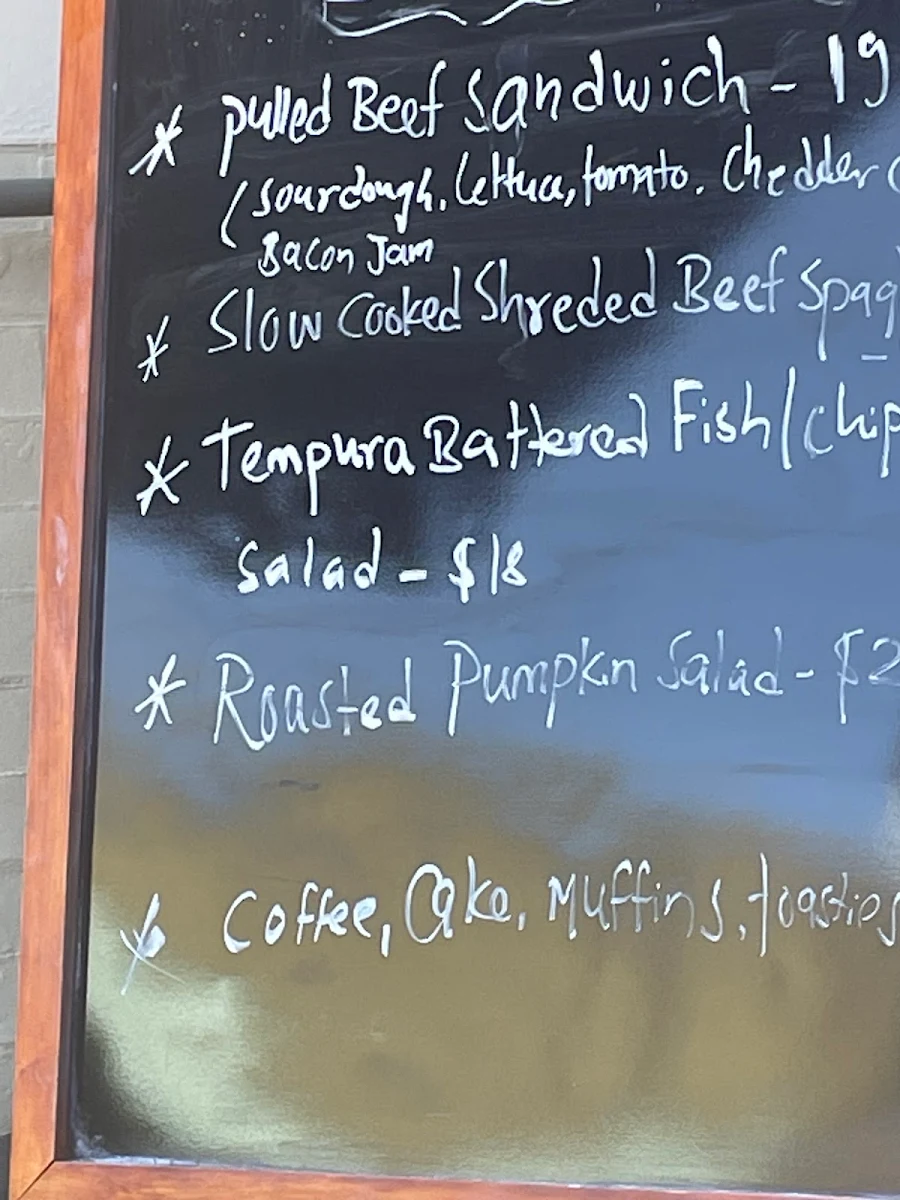 * Pulled Beef Sandwich - 19
(Sourdough, Lettuce, tomato. Chedder
Bacon Jam
* Slow Cooked Shreded Beef Spag
* Tempura Battered Fish/chip
Salad - $18
* Roasted Pumpkn Salad - $2
* Coffee, Cake, Muffins, toasties